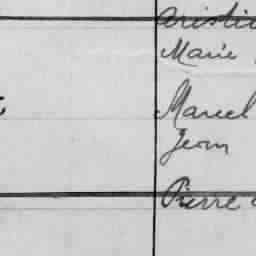 Marie
Marcel
Jean
Pierre